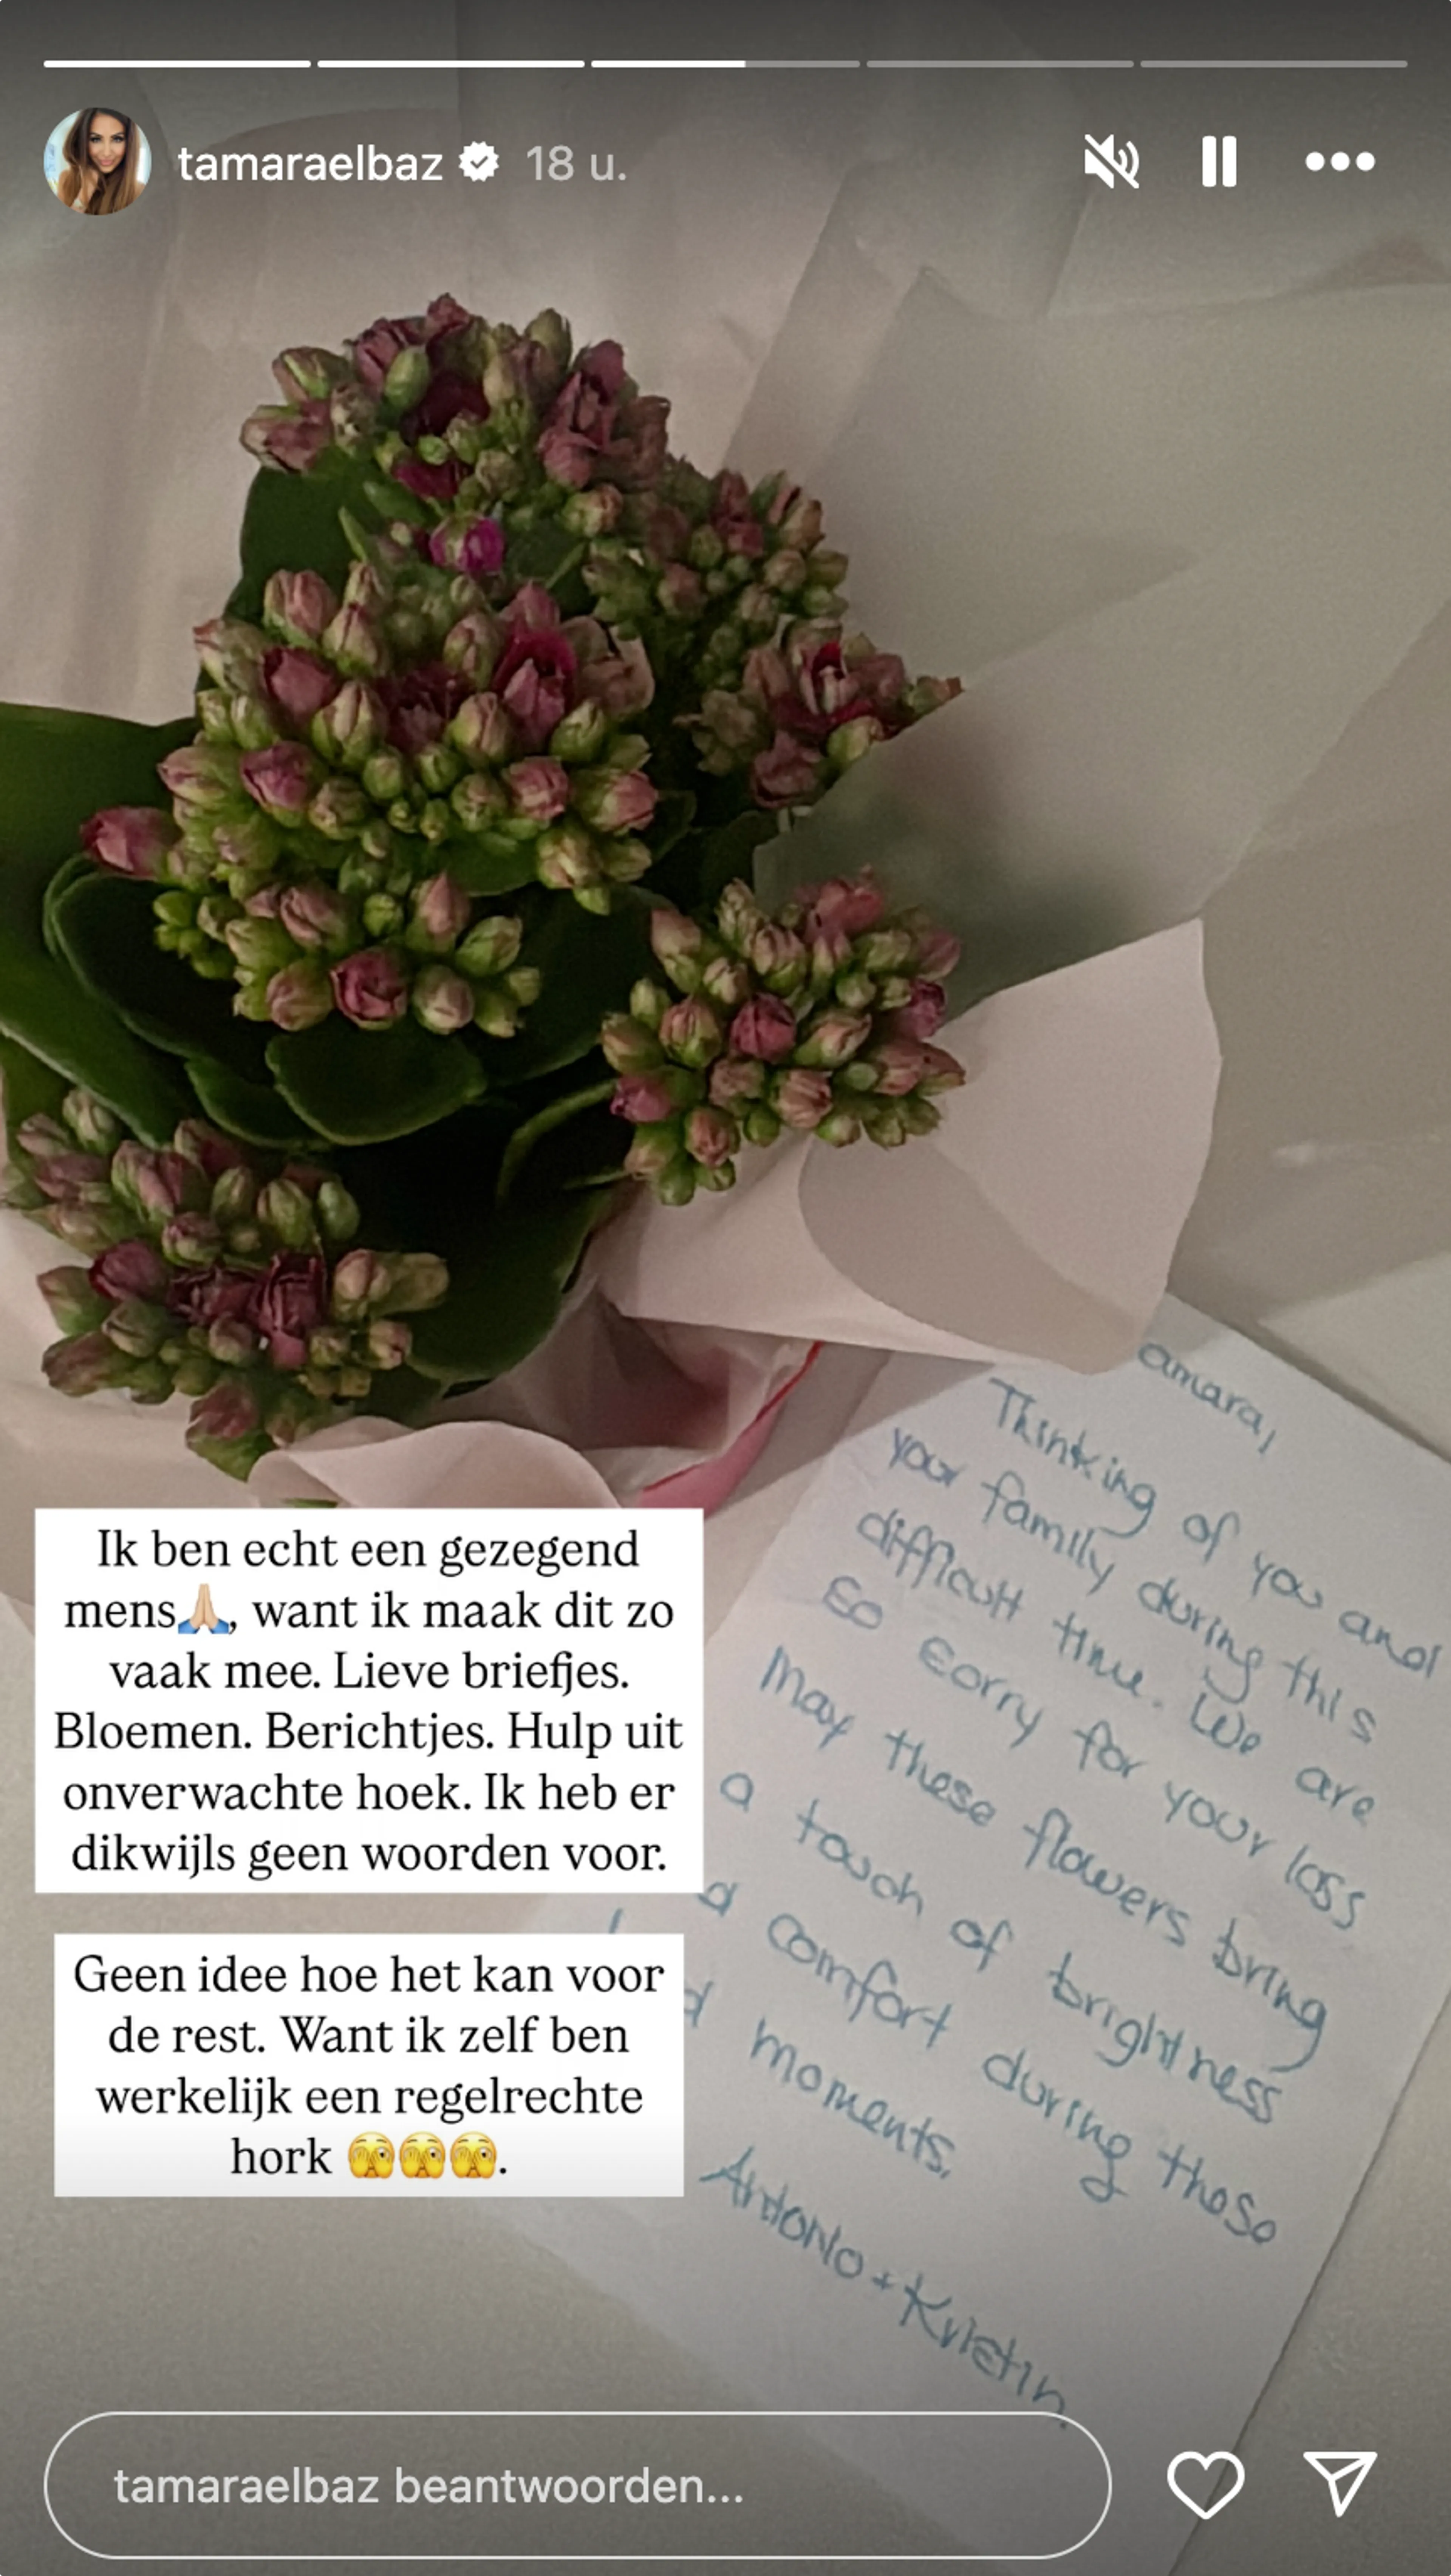 tamaraelbaz 18 u.
amara,
Thinking of you and
your family during this
difficult time. We are
so sorry for your loss
May these flowers bring
a touch of brightness
d comfort during these
d moments.
Antonio + Kristin
Ik ben echt een gezegend
mens🙏🏼, want ik maak dit zo
vaak mee. Lieve briefjes.
Bloemen. Berichtjes. Hulp uit
onverwachte hoek. Ik heb er
dikwijls geen woorden voor.
Geen idee hoe het kan voor
de rest. Want ik zelf ben
werkelijk een regelrechte
hork 🫣🫣🫣.
tamaraelbaz beantwoorden...